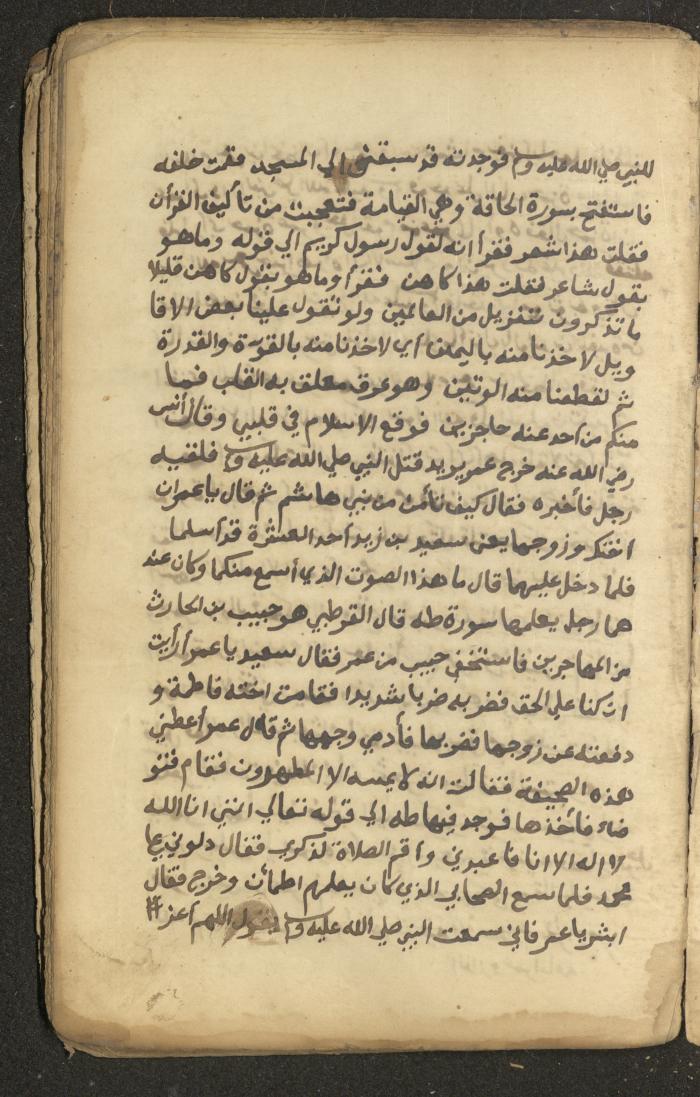 للنبي صلي الله عليه وسلم فوجدته قد سبقني الي المسجد فقمت خلفه
فاستفتح بسورة الحاقة وهي القيامة فتعجبت من تأليف القرأن
فقلت هذا شعر فقرأ انه لقول رسول كريم الي قوله وماهو
بقول شاعر فقلت هذا كاهن فقرأ وماهو بقول كاهن قليلا
ما تذكرون تنزيل من العالمين ولو تقول علينا بعض الاقا
ويل لاخذنا منه باليمين أي لاخذنا منه بالقوة والقدرة
ثم لقطعنا منه الوتين وهو عرق معلق به القلب فما
منكم من أحد عنه حاجزين فوقع الاسلام في قلبي وقال أنس
رضي الله عنه خرج عمر يريد قتل النبي صلي الله عليه وسلم فلقيه
رجل فأخبره فقال كيف تأمن من بني هاشم ثم قال يا عمر ان
اختك وزوجها يعني سعيد بن زيد أحد العشرة قد أسلما
فلما دخل عليهما قال ما هذا الصوت الذي أسمع منكما وكان عند
هما رجل يعلمها سورة طه قال القرطبي هو حبيب بن الحارث
من المهاجرين فاستخفي حبيب من عمر فقال سعيد يا عمر أرأيت
ان كنا علي الحق فضربه ضربا شديدا فقامت اخته فاطمة و
دفعته عن زوجها فضربها فأدمي وجهها ثم قال عمر أعطني
هذه الصحيفة فقالت انه لا يمسه الا المطهرون فقام فتو
ضاء فأخذها فوجد فيها طه الي قوله تعالي انني انا الله
لا اله الا انا فاعبدني وأقم الصلاة لذكري فقال دلوني علي
محمد فلما سمع الصحابي الذي كان يعلمهم اطمأن وخرج فقال
ابشر يا عمر فاني سمعت النبي صلي الله عليه وسلم يقول اللهم أعز